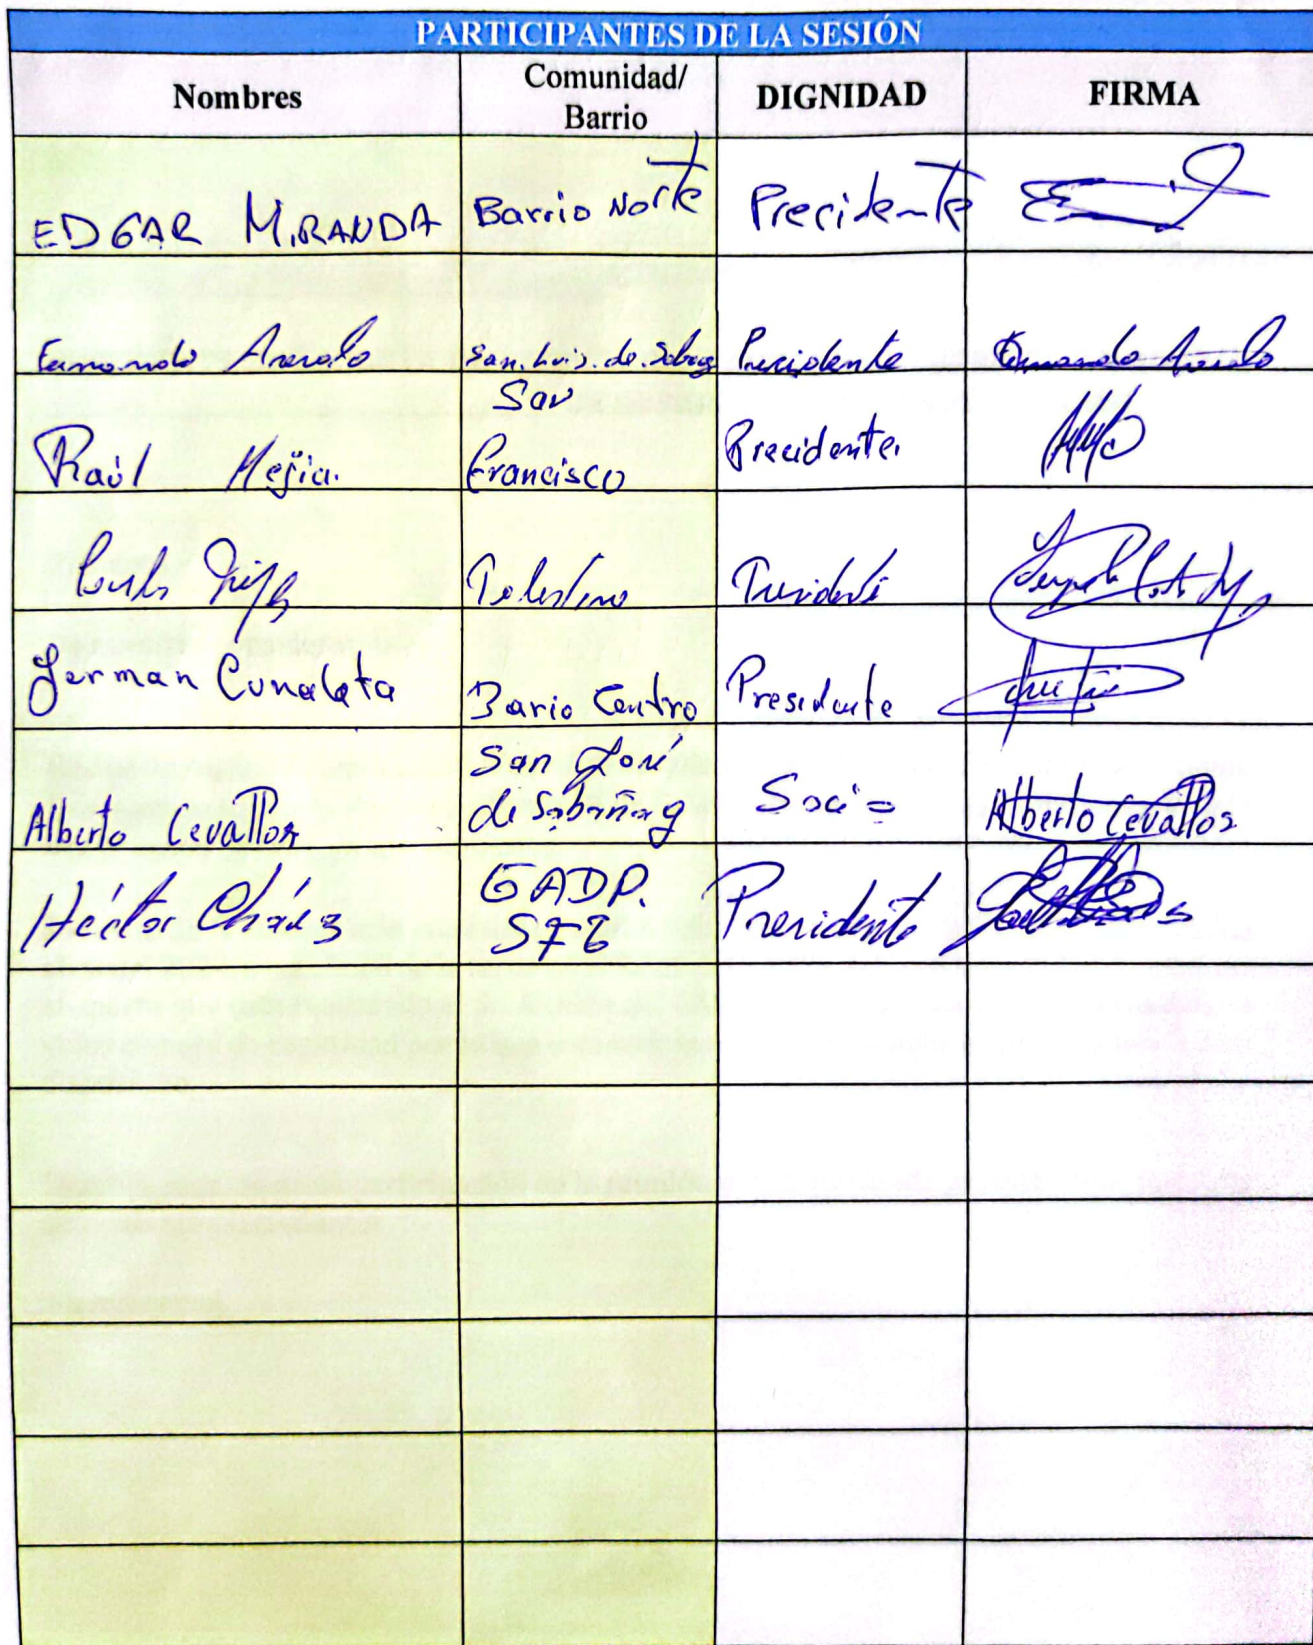 PARTICIPANTES DE LA SESIÓN
Nombres
Comunidad/
Barrio
DIGNIDAD
FIRMA
EDGAR MIRANDA Barrio Norte Precidente
Fernando Arevalo San. Luis. de. Precidente Fernando Arevalo
San
Raúl Mejia. Francisco Precidente.
Presidente
German Barrio Centro Presidente
San José
Alberto Cevallos de Sabañag Socio Alberto Cevallos
GADP.
Héctor Cháves Presidente